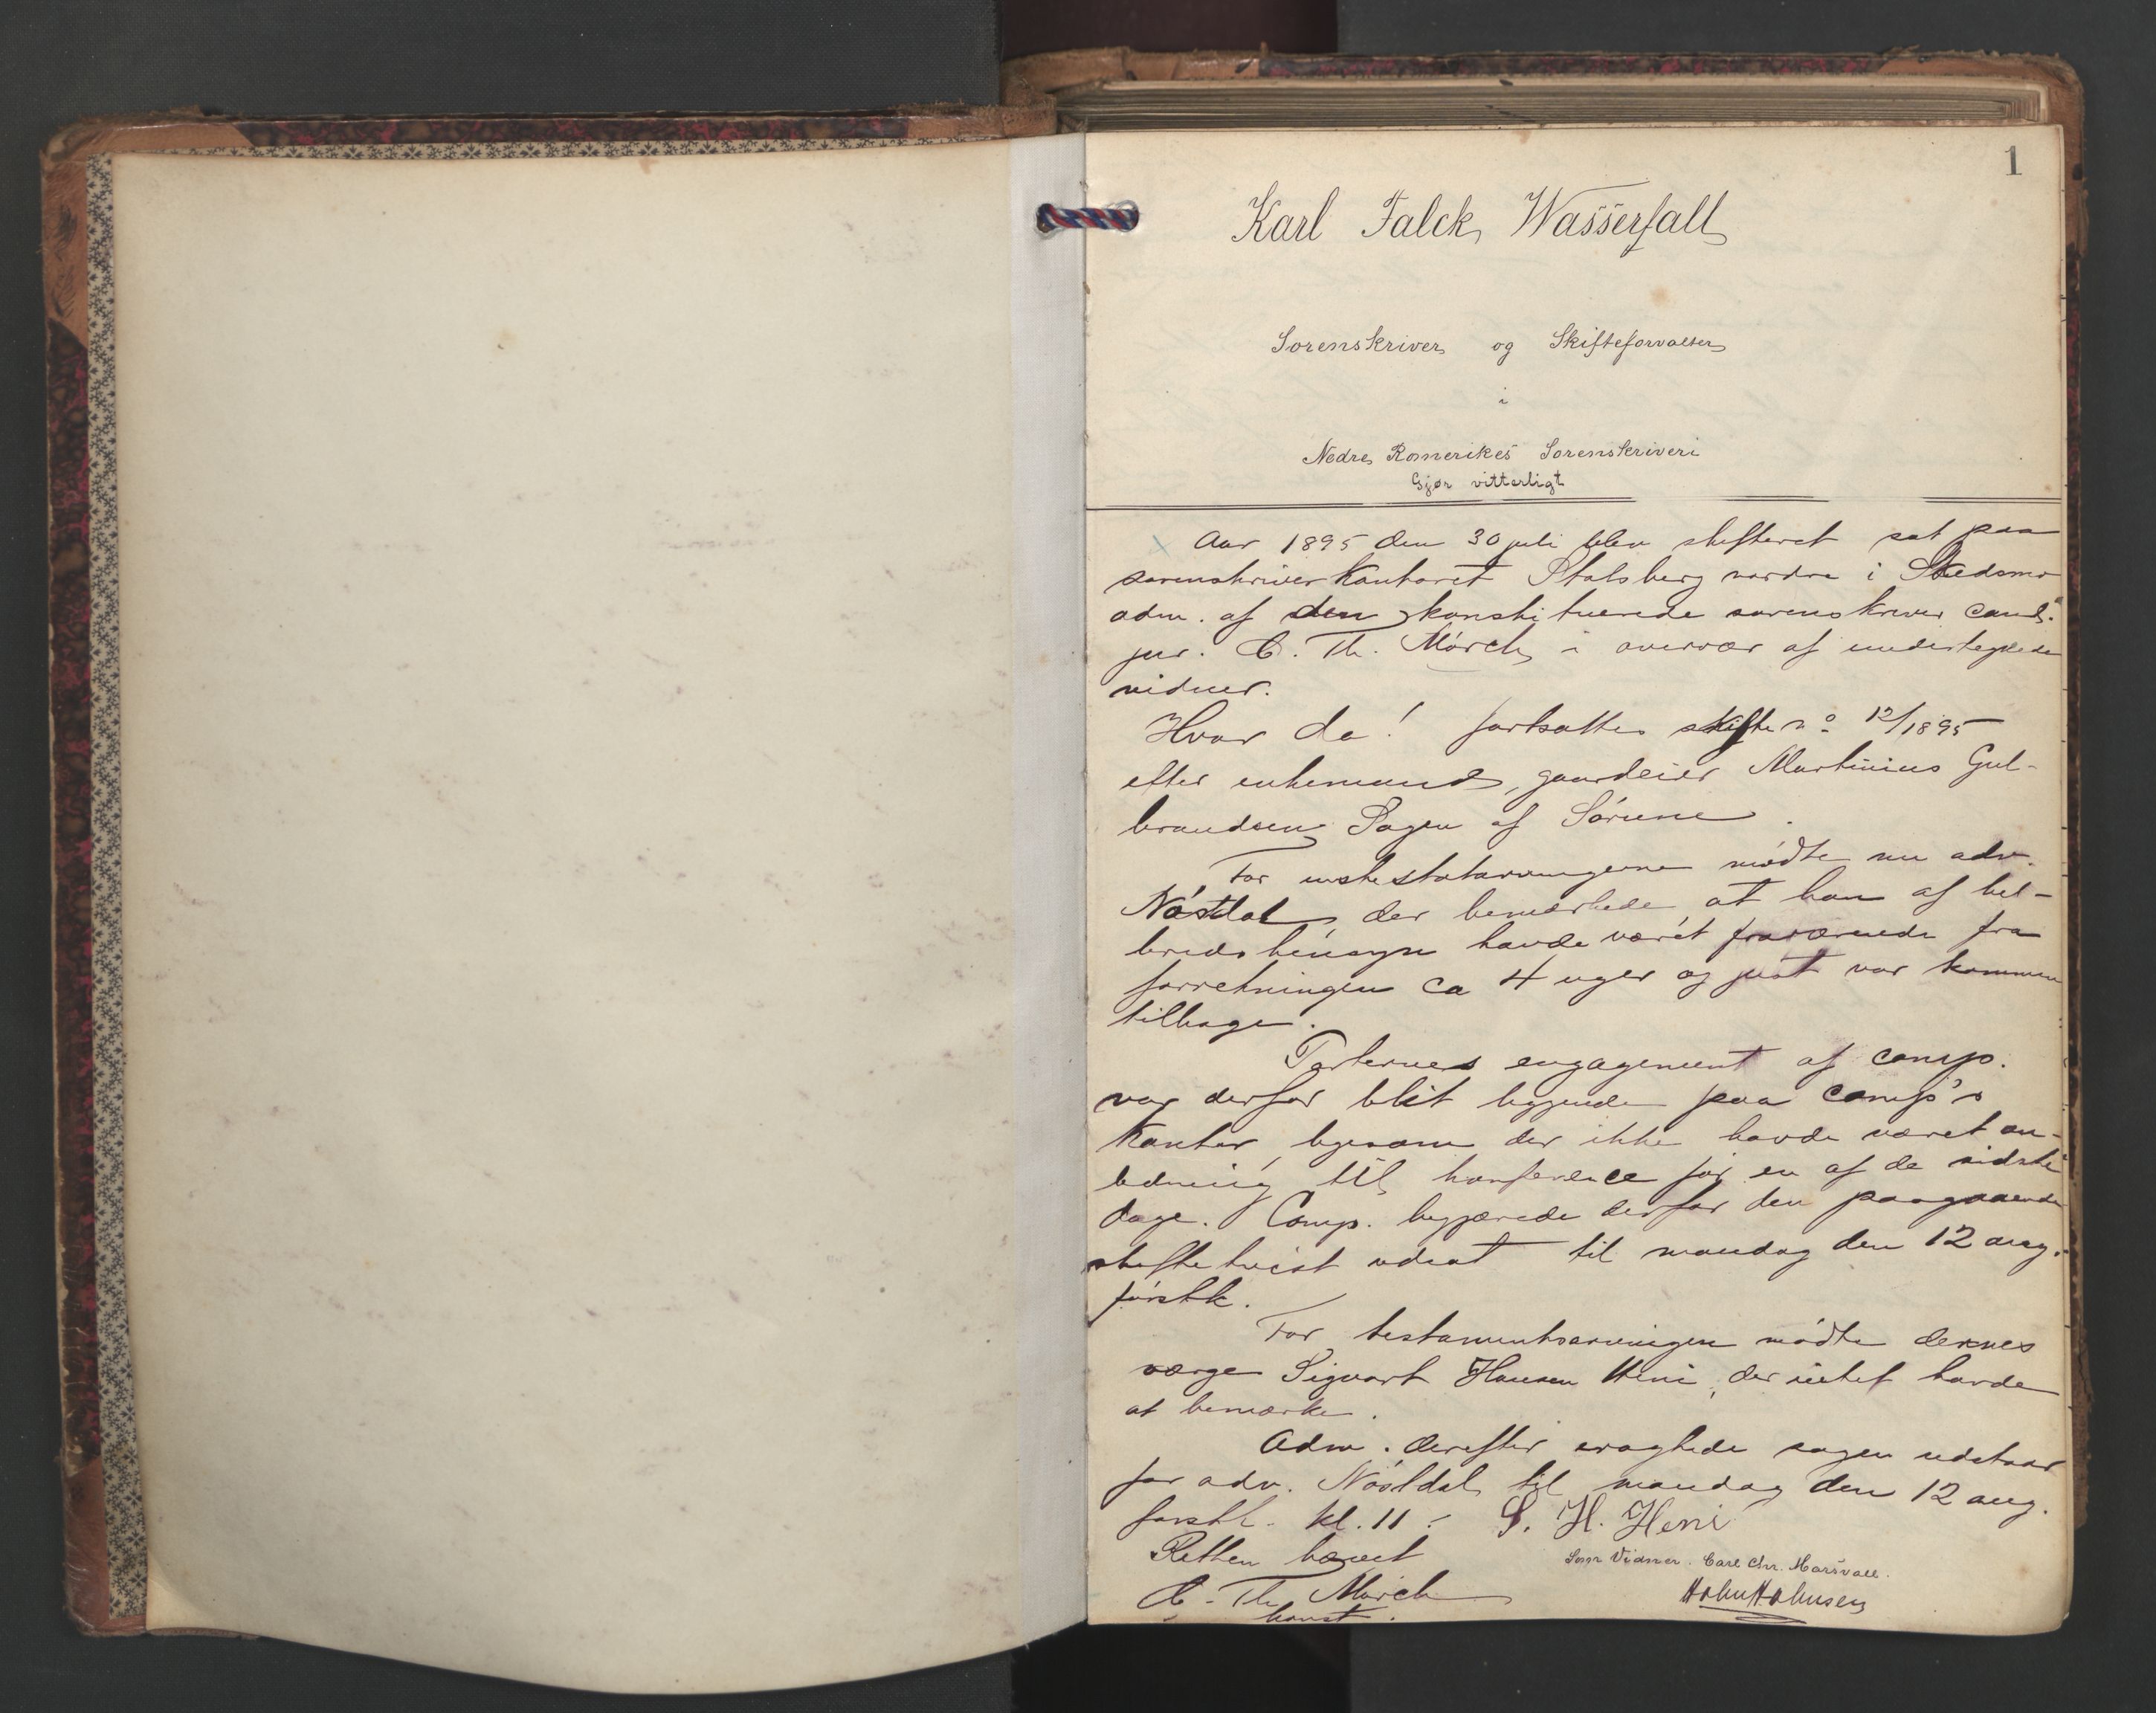 1
Karl Falck Wasserfall
Sorenskriver og Skifteforvalter
i
Nedre Romerikes Sorenskriveri
Gjør vitterligt
Aar 1895 den 30 juli blev skifteret sat paa
sorenskriverkontoret Stalsberg nordre i Skedsmo
adm. af den konstituerede sorenskriver cand.
jur. C. Th. Mørch i overvær af undertegnede
vidner.
Hvor da! fortsattes skifte no 12/1895
efter enkemand, gaardeier Martinius Gul-
brandsen Bogen af Sørum.
For intestatarvingerne mødte nu adv.
Nøstdal, der bemærkede at han af hel-
bredshensyn havde været fraværende fra
forretningen ca 4 uger og just var kommen
tilbage.
Parternes engagement af comp.
var derfor blit liggende paa comp's
kontor, ligesom der ikke havde været an-
ledning til konference før en af de sidste
dage. Comp. begjærede derfor den paagaaende
skiftetvist udsat til mandag den 12 aug.
førstk.
For testamentsarvingen mødte dennes
værge Sigvart Hansen Heni, der intet havde
at bemærke.
Adm. derefter eragtede sagen udstaar
for adv. Nøstdal til mandag den 12 aug.
førstk. kl. 11. S. H. Heni
Retten hævet
Som Vidner. Carl Chr.
C. Th. Mørch
konst.